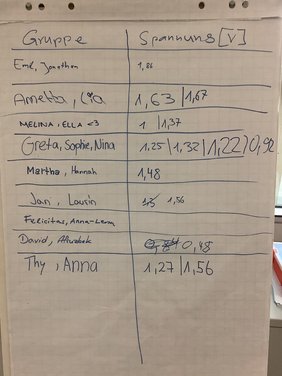 Gruppe Spannung [V]
Emil, Jonathan 1,86
Annetta, Lia 1,63 | 1,67
MELINA, ELLA <3 1 | 1,37
Greta, Sophie, Nina 1,25 | 1,32 | 1,22 | 0,92
Martha, Hannah 1,48
Jan, Laurin 1,56
Felicitas, Anna-Lena
David, 0,48
Thy, Anna 1,27 | 1,56